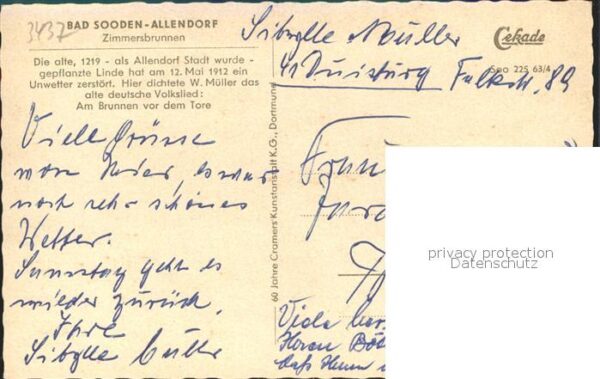 3437
BAD SOODEN-ALLENDORF
Zimmersbrunnen
Die alte, 1219 - als Allendorf Stadt wurde -
gepflanzte Linde hat am 12. Mai 1912 ein
Unwetter zerstört. Hier dichtete W. Müller das
alte deutsche Volkslied:
Am Brunnen vor dem Tore
Viele Grüsse
es war
noch sehr schönes
Wetter.
Samstag geht es
wieder zurück.
Ihre
Sibylle Müller
60 Jahre Cramers Kunstanstalt K.G., Dortmund
Sibylle Müller
41 Duisburg, Falkstr. 89
Cekade
Soo 225 63/4
Frau
Viele
Herrn
daß Ihnen
privacy protection
Datenschutz